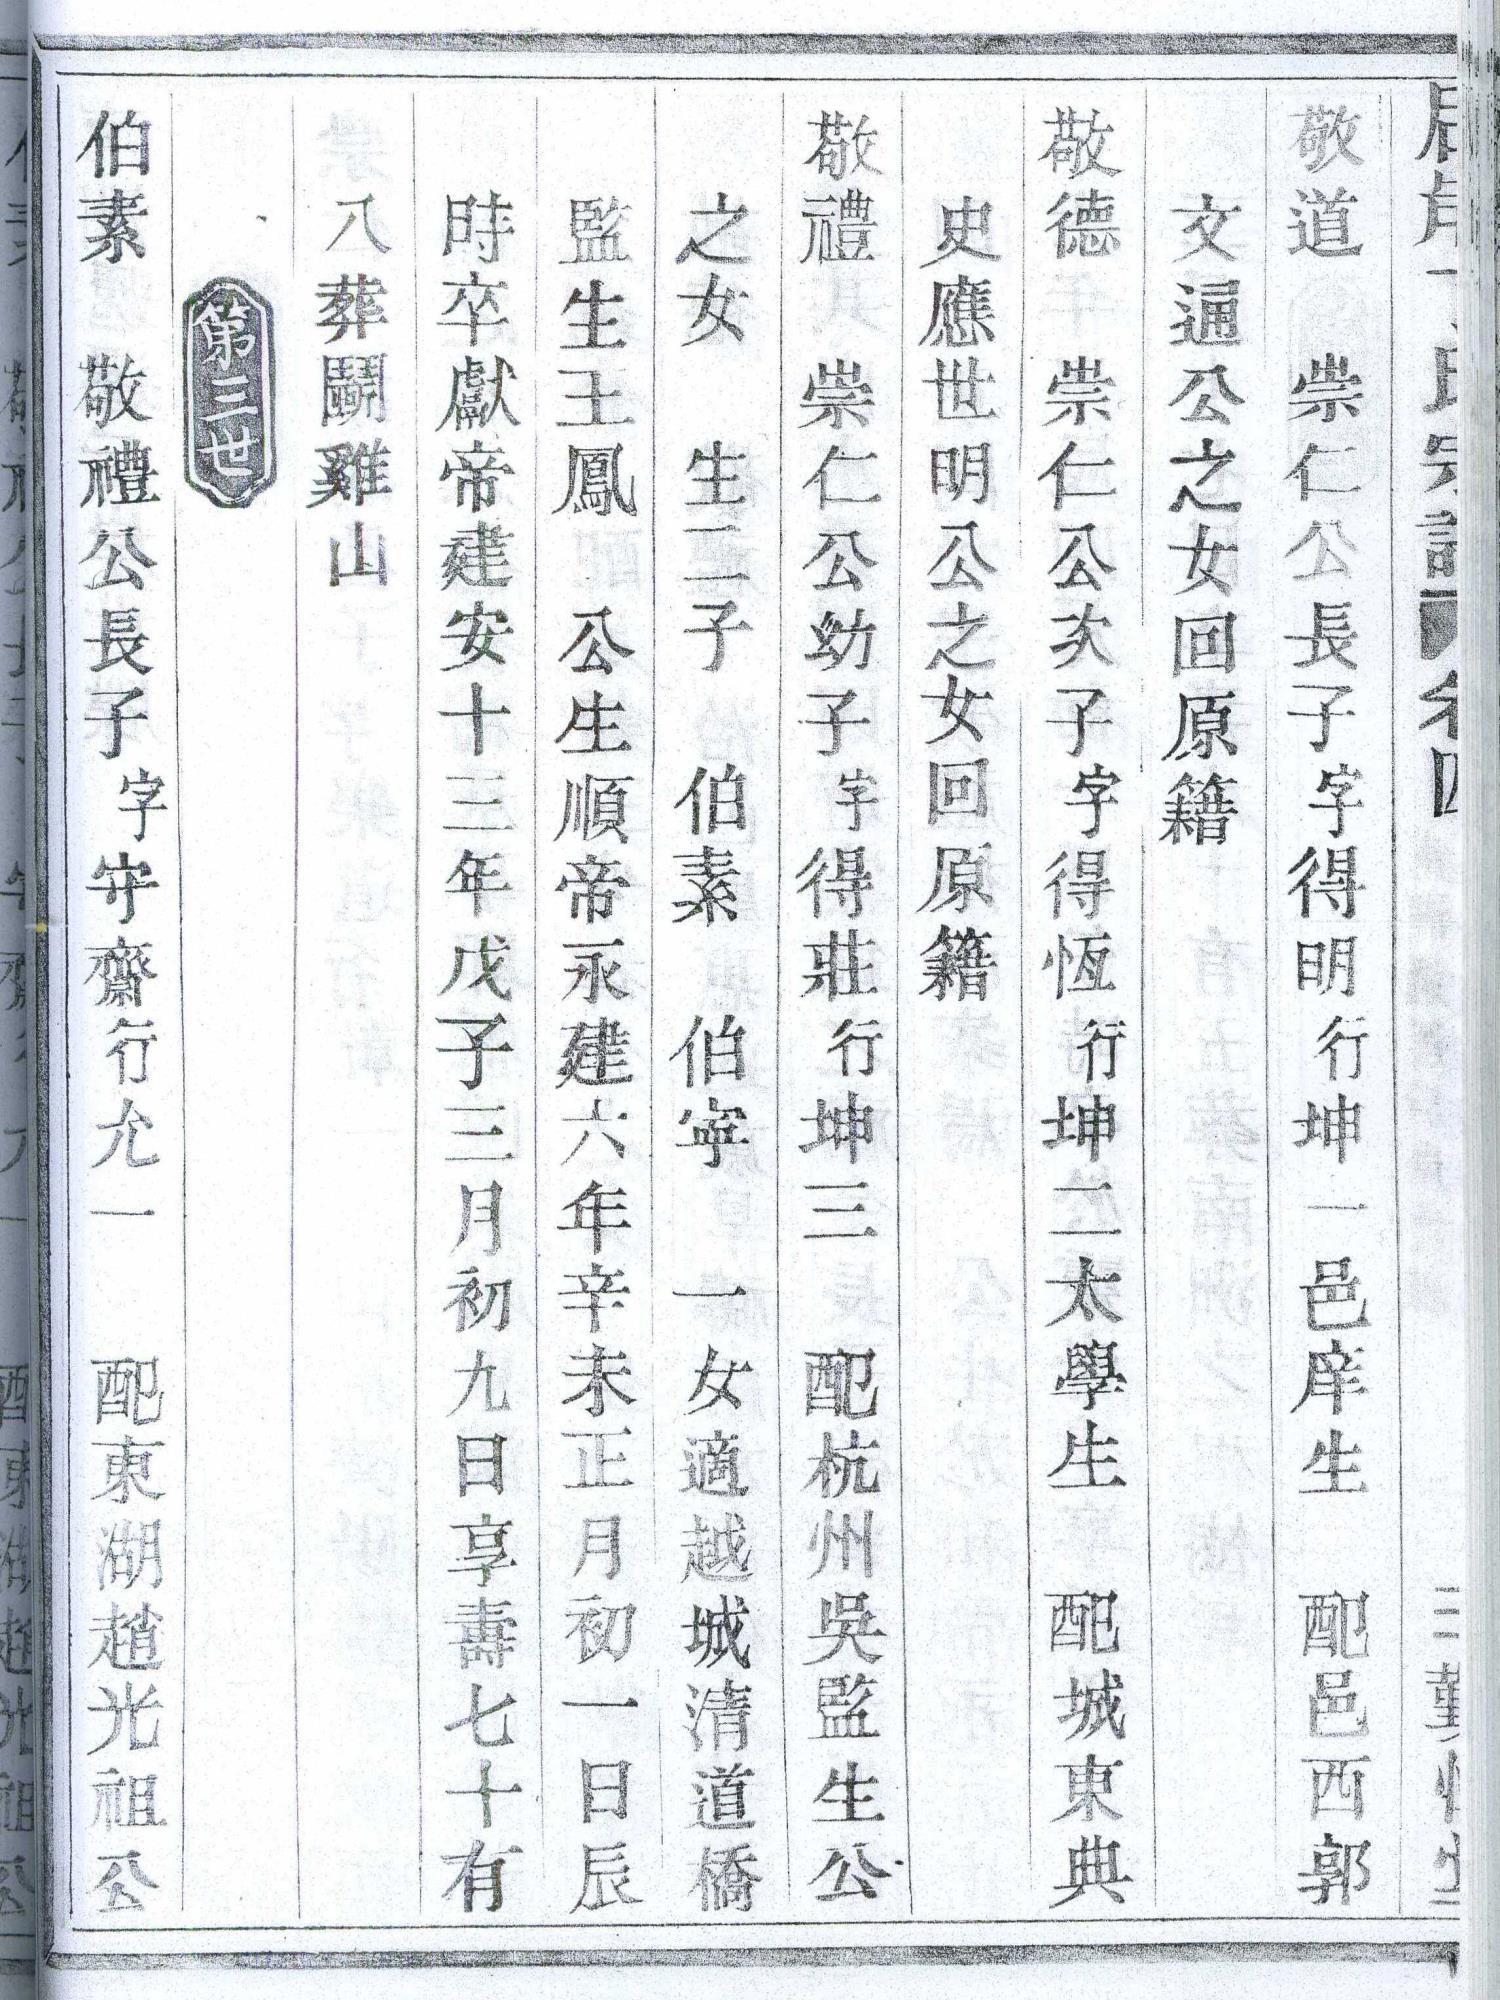 氏宗譜 卷四 三
敬道 崇仁公長子字得明行坤一邑庠生 配邑西郭
文通公之女回原籍
敬德 崇仁公次子字得恆行坤二太學生 配城東典
史應世明公之女回原籍
敬禮 崇仁公幼子字得莊行坤三 配杭州吳監生公
之女 生二子 伯素 伯寧 一女適越城清道橋
監生王鳳 公生順帝永建六年辛未正月初一日辰
時卒獻帝建安十三年戊子三月初九日享壽七十有
八葬鬬雞山
第三世
伯素 敬禮公長子字守齋行允一 配東湖趙光祖公